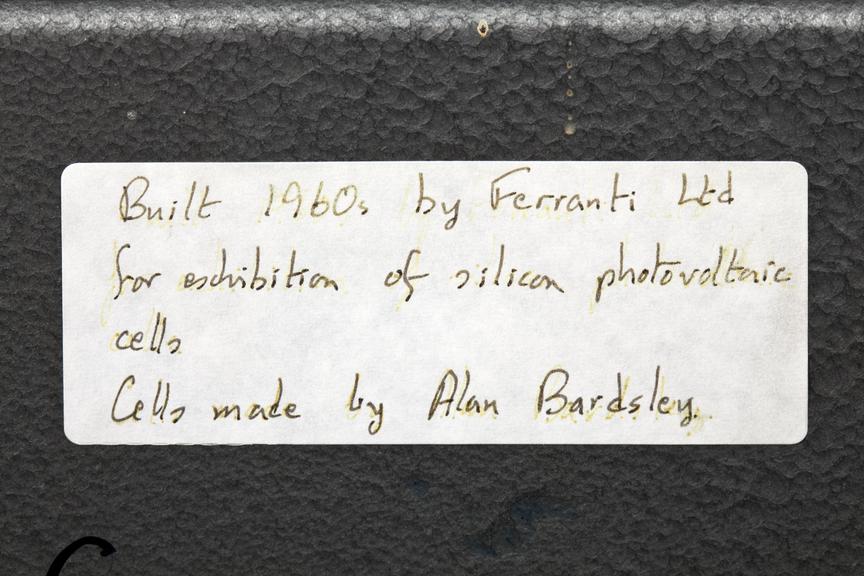 Built 1960s by Ferranti Ltd
for exhibition of silicon photovoltaic
cells
Cells made by Alan Bardsley.